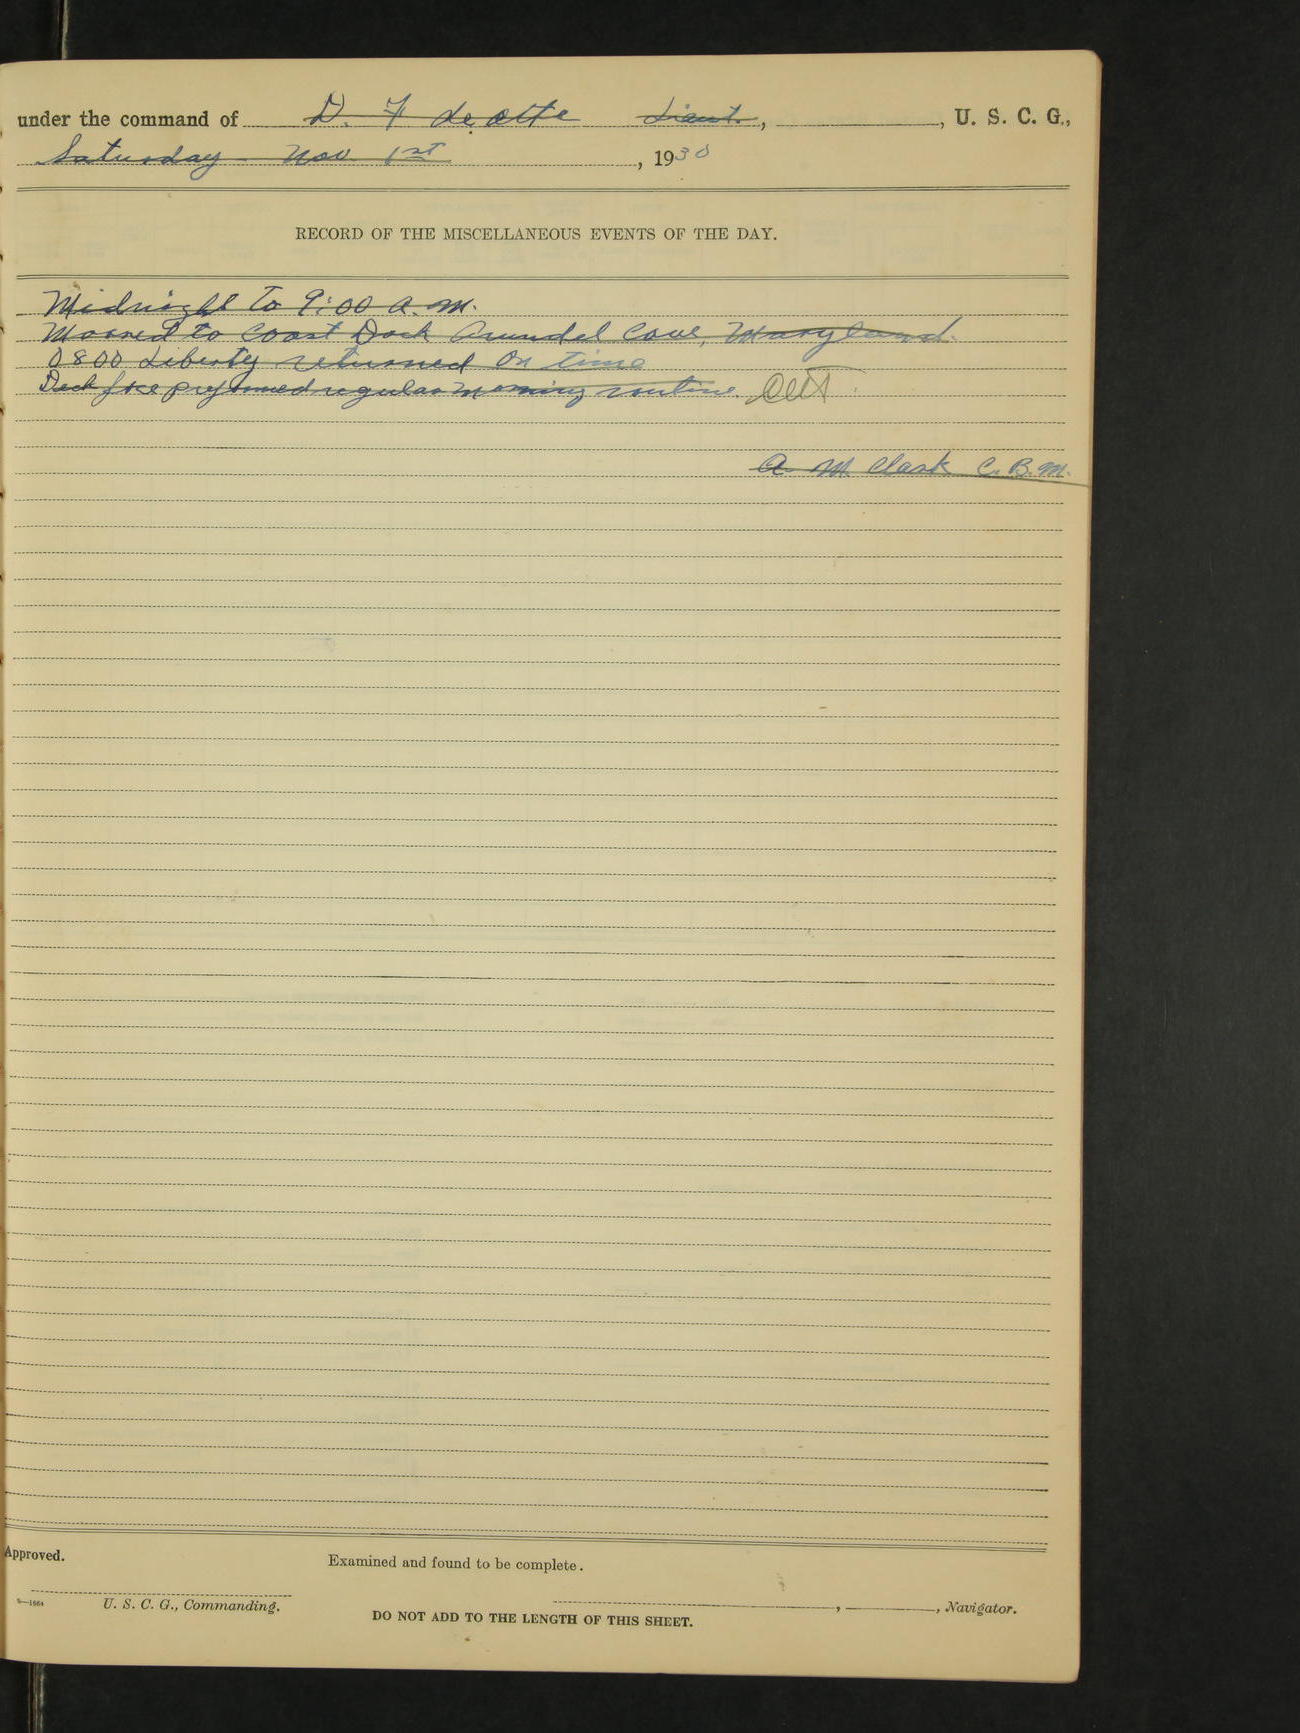 under the command of D. F. de Otte Lieut., , U. S. C. G.,
Saturday Nov 1st, 1930
RECORD OF THE MISCELLANEOUS EVENTS OF THE DAY.
Midnight to 9:00 a.m.
Moored to Coast Dock Arundel Cove, Maryland.
0800 Liberty returned on time
Deck fce preformed regular morning routine.
A. M. Clark C.B.M.
Approved.
Examined and found to be complete.
U. S. C. G., Commanding.
, , Navigator.
DO NOT ADD TO THE LENGTH OF THIS SHEET.